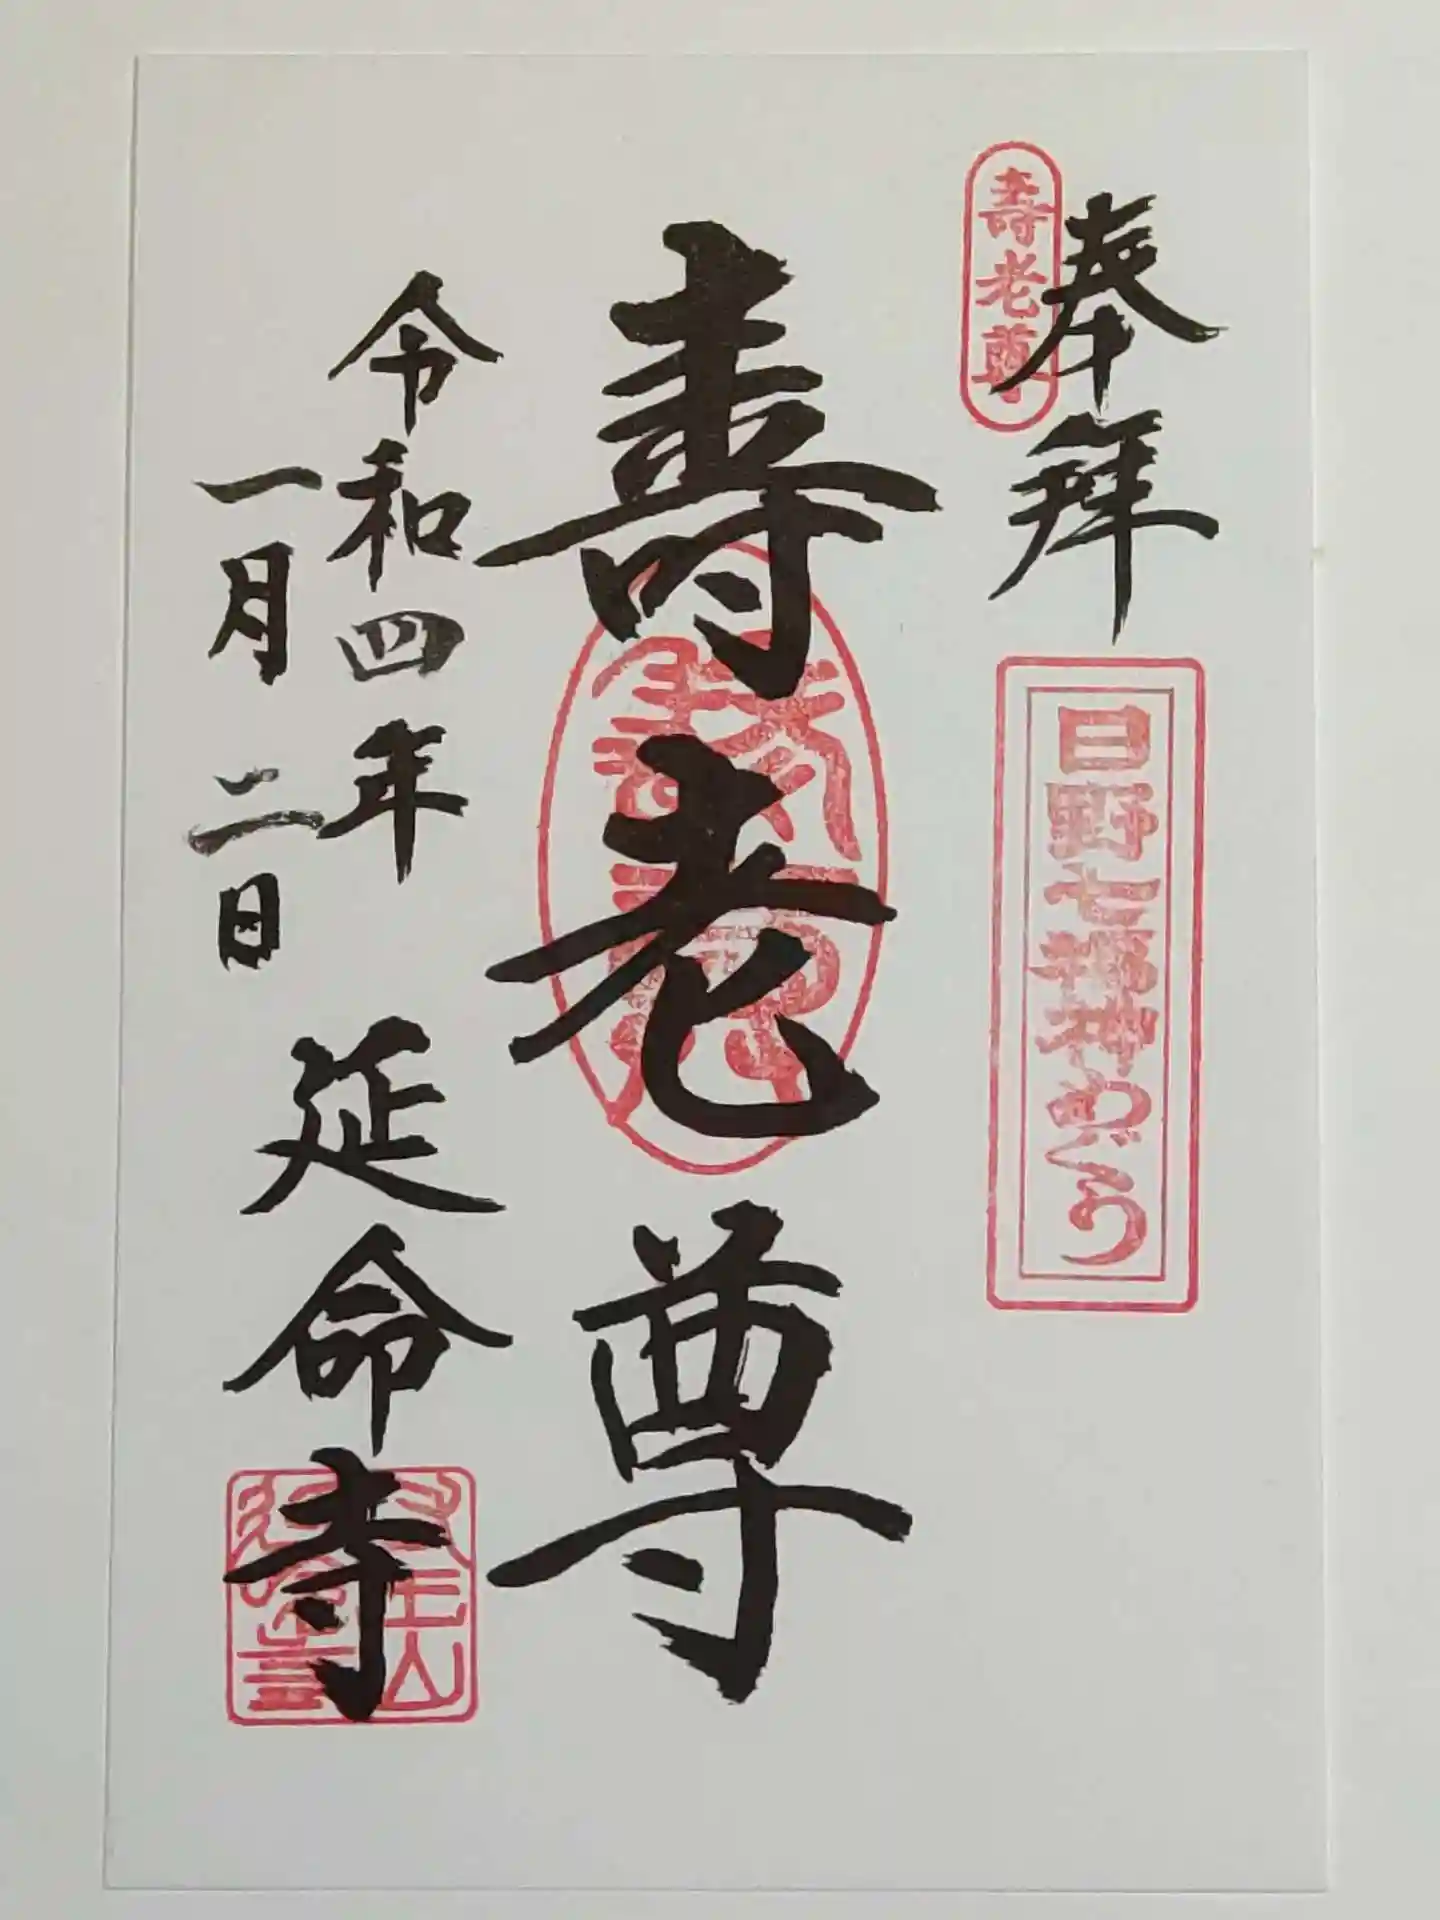 奉拜
壽老尊
日野七福神めぐり
壽老尊
令和四年
一月二日
延命寺